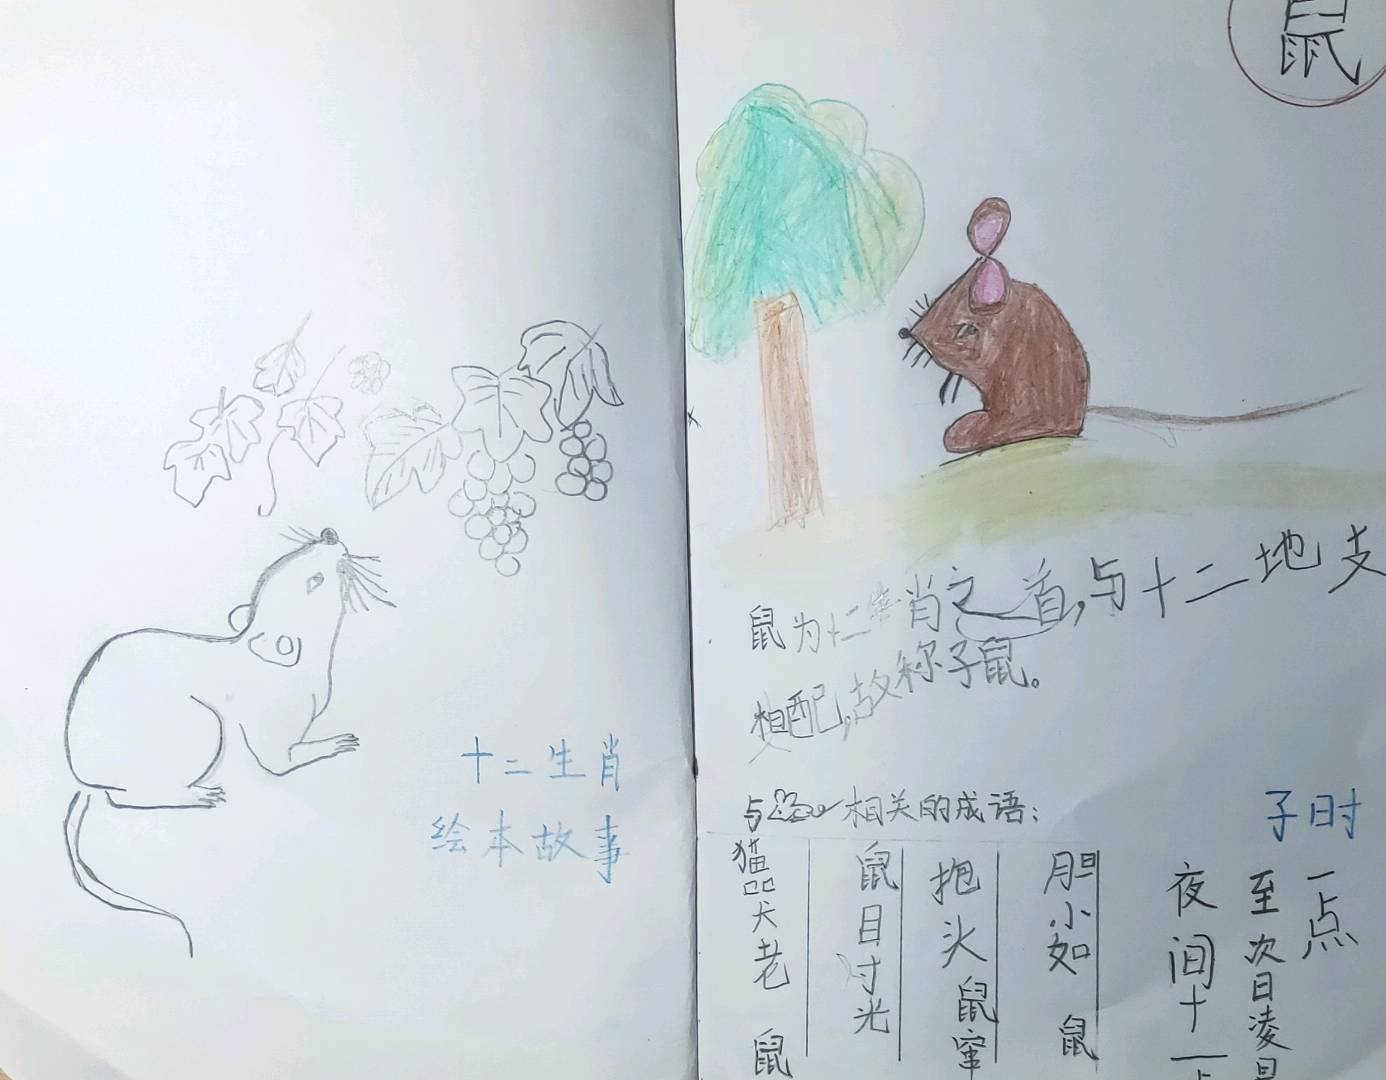 十二生肖
绘本故事
鼠
鼠为十二生肖之首,与十二地支
相配,故称子鼠。
与相关的成语:
胆小如鼠
抱头鼠窜
鼠目寸光
猫哭老鼠
子时
夜间十一
至次日凌
一点